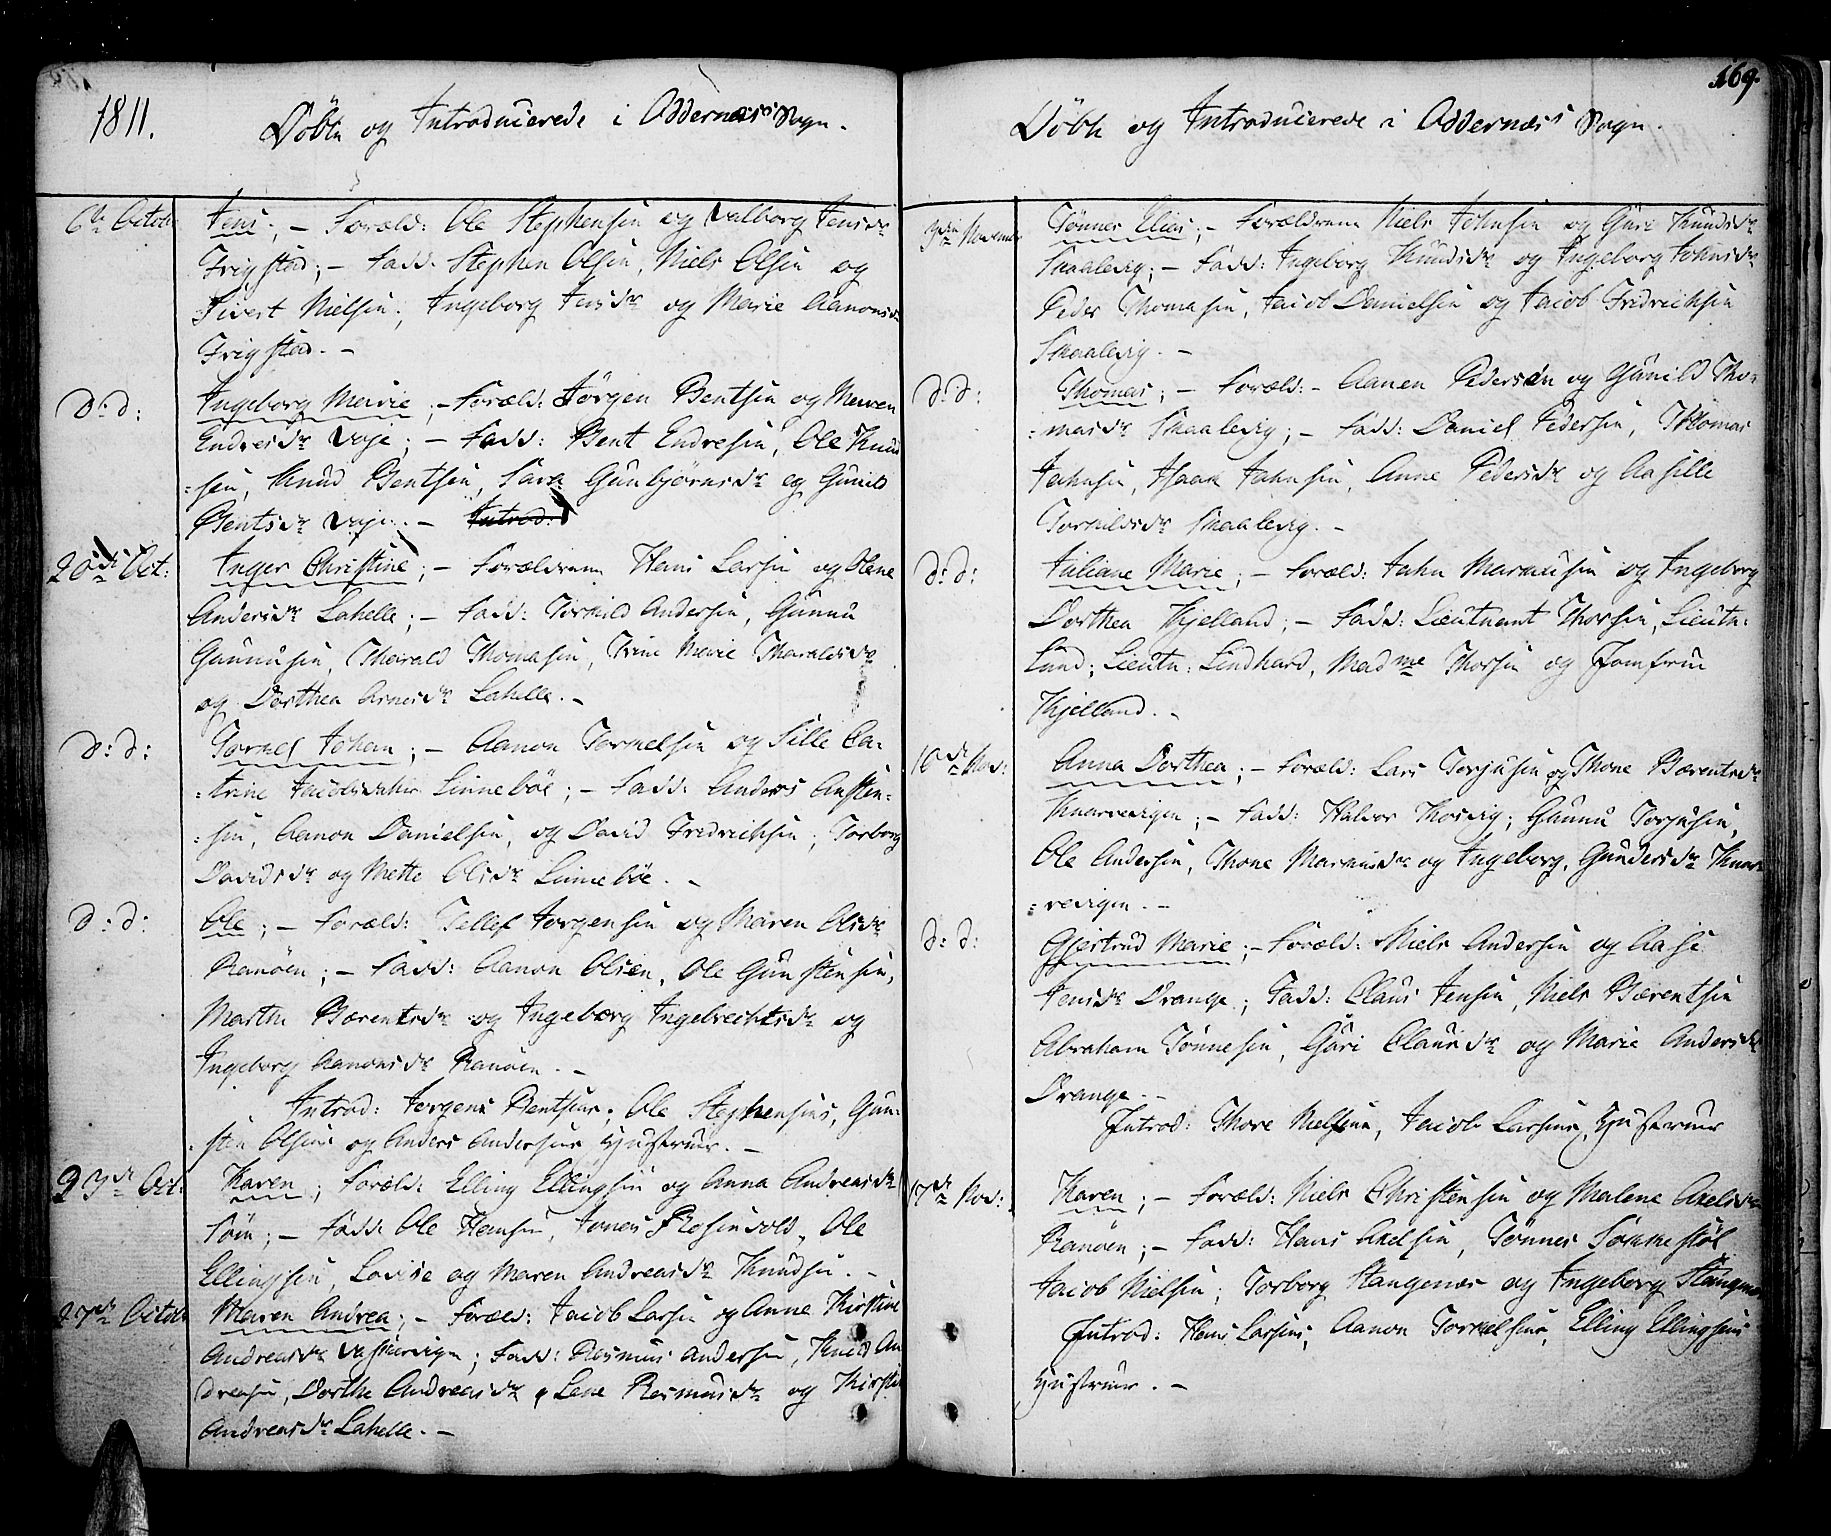 1811.
Döbte og Introducerede i Oddernæss Sogn.
6te October Jens; – Foræld: Ole Stephensen og Valborg Jensdr
Frigstad; – Fadd: Stephen Olsen, Niels Olsen og
Sivert Nielsen; Ingeborg Jensdr og Marie Aanonsdr
Frigstad. –
d: d: Ingeborg Marie; – Foræld: Jörgen Bentsen og Maren
Endresdr Vaje; – Fadd: Bent Endresen, Ole Knud
:sen, Knud Bentsen, Sara Gunbjørnsdr og Gunild
Bentsdr Vaje. – Introd:
20de Oct: Inger Christine; – Forældrene Hans Larsen og Olene
Andersdr Lahelle; – Fadd: Torkild Andersen, Gunnu
Gunnusen, Tharald Thomasen, Trine Marie Tharaldsdr
og Dorthea Arnesdr Lahelle. –
d: d: Tormel Johan; – Aanon Tormelsen og Sille Ca:
:trine Jacobsdatter Linneböe; – Fadd: Anders Austen:
:sen, Aanon Danielsen, og David Fredrichsen; Torborg
Davidsdr og Mette Olsdr Linneböe. –
d: d: Ole; – Foræld: Tellef Jorgensen og Maren Olsdr
Randen; – Fadd: Aanon Olsen, Ole Gunstensen,
Marthe Bærentsdr og Ingeborg Ingebrechtsdr og
Ingeborg Aanonsdr Randen. –
Introd: Jorgens Bentsens, Ole Stephensens, Gun:
:sten Olsens og Anders Andersens Hustruer. –
23de Oct: Karen; Foræld: Elling Ellingsen og Anna Andreasdr
Söm; – Fadd: Ole Hansen, Jonas Rosenvold, Ole
Ellingsen, Lovise og Maren Andreasdr Knudsen. –
27de October Maren Andrea; – Foræld: Jacob Larsen og Anne Kirstine
Andreasdr Vaskervigen; Fadd: Rasmus Andersen, Knud An
dreasen, Dorthe Andreasdr, Lene Rasmusdr og Kirstine
Andreasdr Lahelle. –
169.
Döbte og Introducerede i Oddernæss Sogn.
3die November Tönnes Elias; – Forældrene Niels Johnsen og Guri Knudsdr
Skaalevig; – Fadd: Ingeborg Knudsdr og Ingeborg Johnsdr
Peder Thomasen, Jacob Danielsen og Jacob Fredrichsen
Skaalevig. –
d: d: Thomas; – Foræld: – Aanen Pedersen og Gunild Tho:
:masdr Skaalevig; – Fadd: Daniel Pedersen, Thomas
Jahnsen, Isaac Jahnsen, Anne Pedersdr og Aasille
Torkildsdr Skaalevig. –
d: d: Juliane Marie; – Foræld: Jahn Marcusen og Ingeborg
Dorthea Kjelland; – Fadd: Lieutnant Thorsen, Lieutn:
Lund; Lieutn: Lindhard, Madme Thorsen og Jomfrue
Kjelland. –
10de Nov: Anna Dorthea; – Foræld: Lars Torjusen og Thone Bærentsdr
Knarrevigen; – Fadd: Halvor Thorvig; Gunnu Torjusen,
Ole Andersen, Thone Marcusdr og Ingeborg Gundersdr Knar
:revigen. –
d: d: Gjertrud Marie; – Foræld: Niels Andersen og Aase
Jensdr Drange; Fadd: Claus Jensen, Niels Bærentsen
Abraham Tönnesen, Guri Clausdr og Marie Andersdr
Drange. –
Introd: Thore Nielsens, Jacob Larsens, Hustruer
17de Nov: Karen; – Foræld: Niels Christensen og Malene Axelsdr
Randen; – Fadd: Hans Axelsen, Tönnes Sommestöl
Jacob Nielsen; Torborg Stangenæs og Ingeborg Stangenæs
Introd: Hans Larsens, Aanon Tormelsens, Elling Ellingsens
Hustruer. –